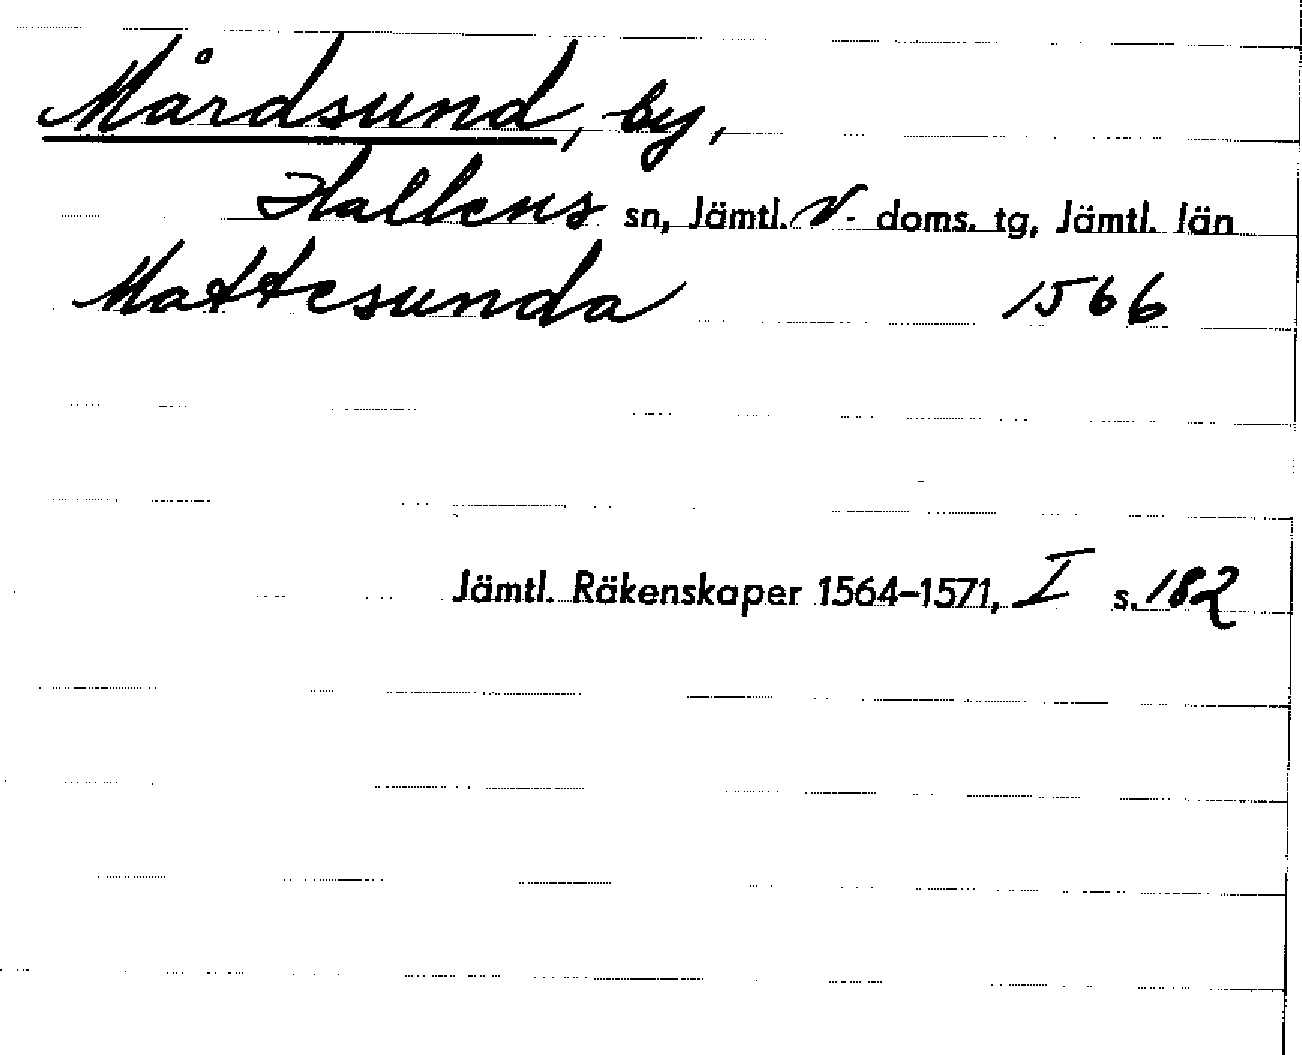 Mårdsund, by,
Hallens sn, Jämtl. V. doms. tg, Jämtl. län
Mattesunda 1566
Jämtl. Räkenskaper 1564-1571, I s. 182